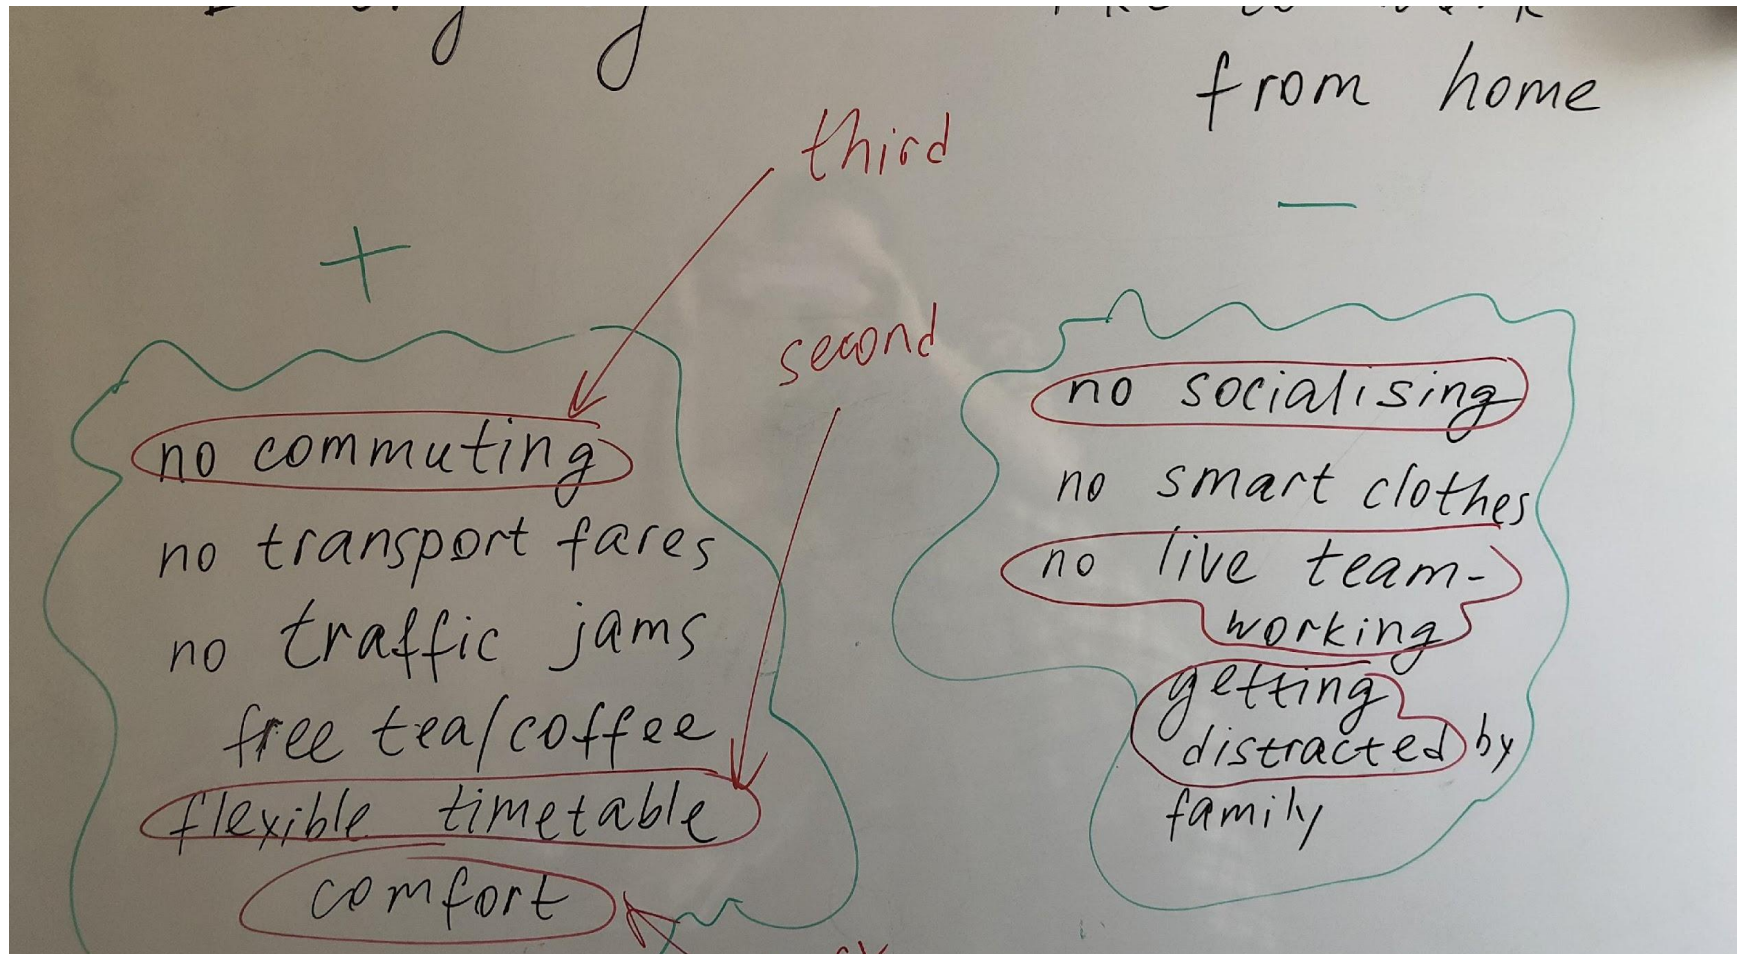 from home
third
+
—
second
no commuting
no transport fares
no traffic jams
free tea/coffee
flexible timetable
comfort
no socialising
no smart clothes
no live team-
working
getting
distracted by
family